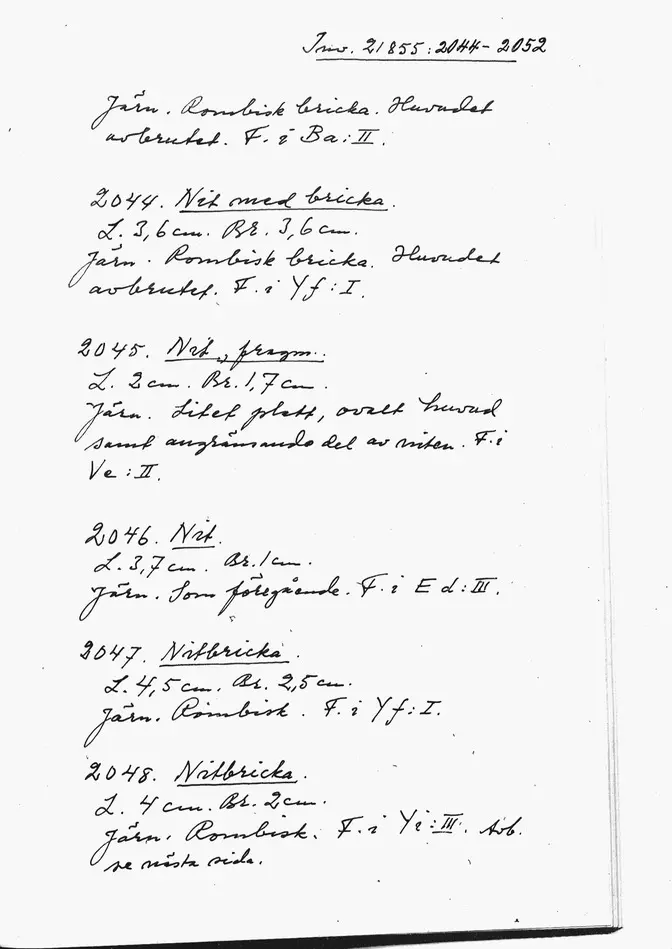 Inv. 21855:2044-2052
Järn. Rombisk bricka. Huvudet
avbrutet. F. i Ba:II.
2044. Nit med bricka.
L. 3,6 cm. Br. 3,6 cm.
Järn. Rombisk bricka. Huvudet
avbrutet. F. i Yf:I.
2045. Nit, fragm.
L. 2 cm. Br. 1,7 cm.
Järn. Litet platt, ovalt huvud
samt angränsande del av niten. F. i
Ve:II.
2046. Nit.
L. 3,7 cm. Br. 1 cm.
Järn. Som föregående. F. i Ed:III.
2047. Nitbricka.
L. 4,5 cm. Br. 2,5 cm.
Järn. Rombisk. F. i Yf:I.
2048. Nitbricka.
L. 4 cm. Br. 2 cm.
Järn. Rombisk. F. i Yi:III. Avb.
se nästa sida.